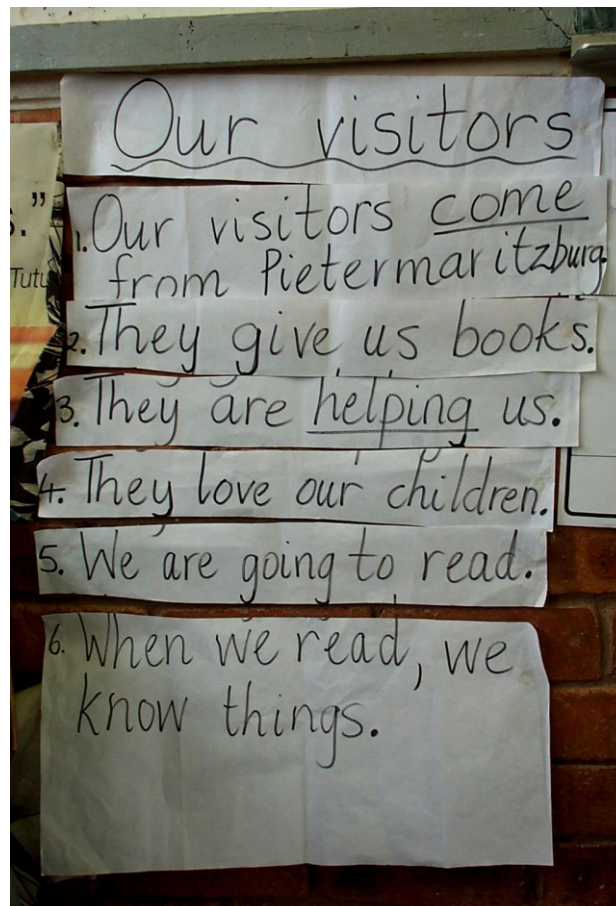 Our visitors
1. Our visitors come
from Pietermaritzburg.
2. They give us books.
3. They are helping us.
4. They love our children.
5. We are going to read.
6. When we read, we
know things.
.”
Tutu